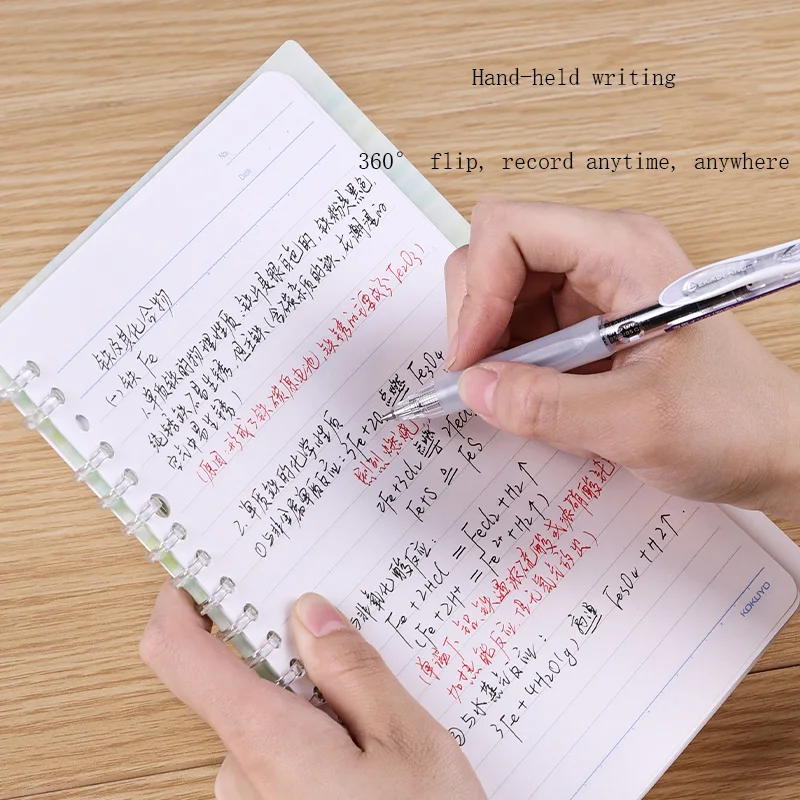 Hand-held writing
360° flip, record anytime, anywhere
No.
Date
铁及其化合物
(一) 铁 Fe
1.单质铁的物理性质:铁片是银白色的,铁粉是黑色,
纯铁不易生锈,但生铁(含碳杂质的铁)在潮湿的
空气中易生锈)
(原因:形成了铁碳原电池 铁锈的主要成分Fe2O3)
2.单质铁的化学性质
与非金属单质反应:3Fe+2O 点燃 Fe3O4
剧烈燃烧
2Fe+3Cl 点燃 2FeCl
Fe+S △ FeS
与非氧化酸反应:
Fe+2HCl = FeCl2+H2↑
(Fe+2H+ = Fe2++H2↑)
(常温下铝、铁遇浓硫酸或浓硝酸钝化
加热能反应但无氢气放出)
③与水蒸气反应:
3Fe+4H2O(g) 高温 Fe3O4+H2↑
KOKUYO